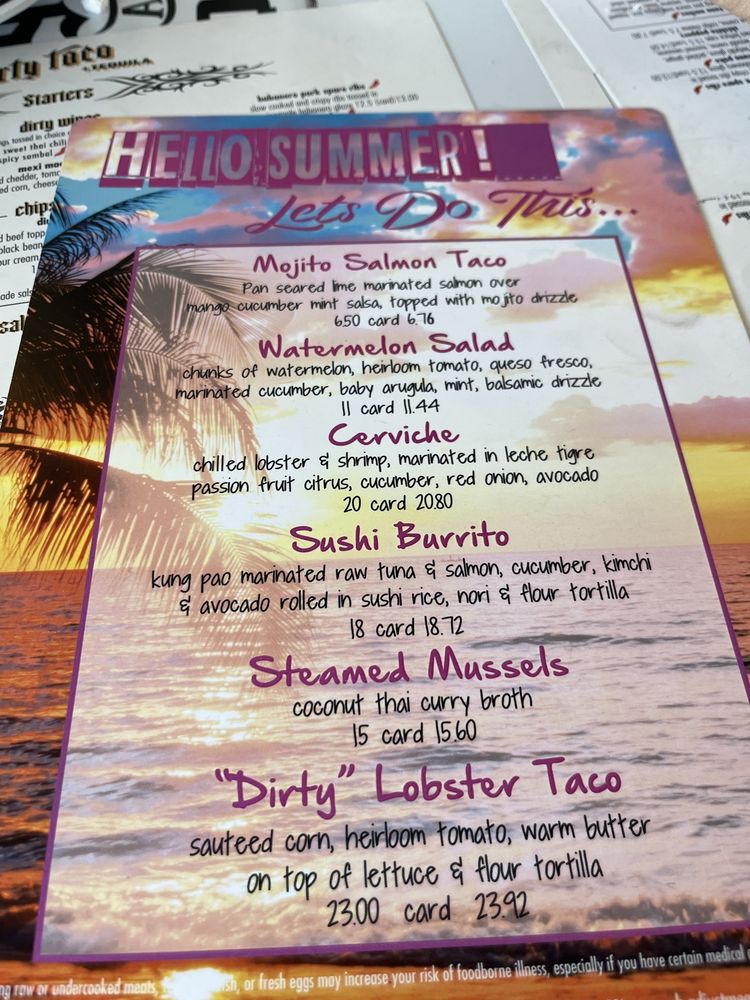 rty Taco
+TEQUILA
Starters
dirty wings
sweet thai chili
spicy sambal
mexi mac
chips
HELLO SUMMER!
Lets Do This...
Mojito Salmon Taco
Pan seared lime marinated salmon over
mango cucumber mint salsa, topped with mojito drizzle
6.50 card 6.76
Watermelon Salad
chunks of watermelon, heirloom tomato, queso fresco,
marinated cucumber, baby arugula, mint, balsamic drizzle
11 card 11.44
Cerviche
chilled lobster & shrimp, marinated in leche tigre
passion fruit citrus, cucumber, red onion, avocado
20 card 20.80
Sushi Burrito
kung pao marinated raw tuna & salmon, cucumber, kimchi
& avocado rolled in sushi rice, nori & flour tortilla
18 card 18.72
Steamed Mussels
coconut thai curry broth
15 card 15.60
"Dirty" Lobster Taco
sauteed corn, heirloom tomato, warm butter
on top of lettuce & flour tortilla
23.00 card 23.92
raw or undercooked meats, or fresh eggs may increase your risk of foodborne illness, especially if you have certain medical